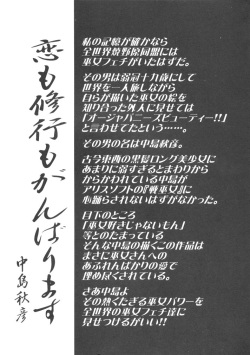 恋も修行もがんばります
中島秋彦
私の記憶が確かなら
全世界焼野原同盟には
巫女フェチがいたはずだ。
その男は弱冠十九歳にして
世界を一人旅しながら
自らが描いた巫女の絵を
知り合った外人に見せては
「オージャパニーズビューティー!!」
と言わせてたという……。
その男の名は中島秋彦。
古今東西の黒髪ロング美少女に
あまりに弱すぎるとまわりから
からかわれている中島が
アリスソフトの『戦巫女』に
心躍らされないはずがなかった。
目下のところ
「巫女好きじゃないもん」
等とのたまっている
そんな中島の描くこの作品は
まさに巫女さんへの
あふれんばかりの愛で
埋め尽くされている。
さあ中島よ
その熱くたぎる巫女パワーを
全世界の巫女フェチ達に
見せつけるがいい!!